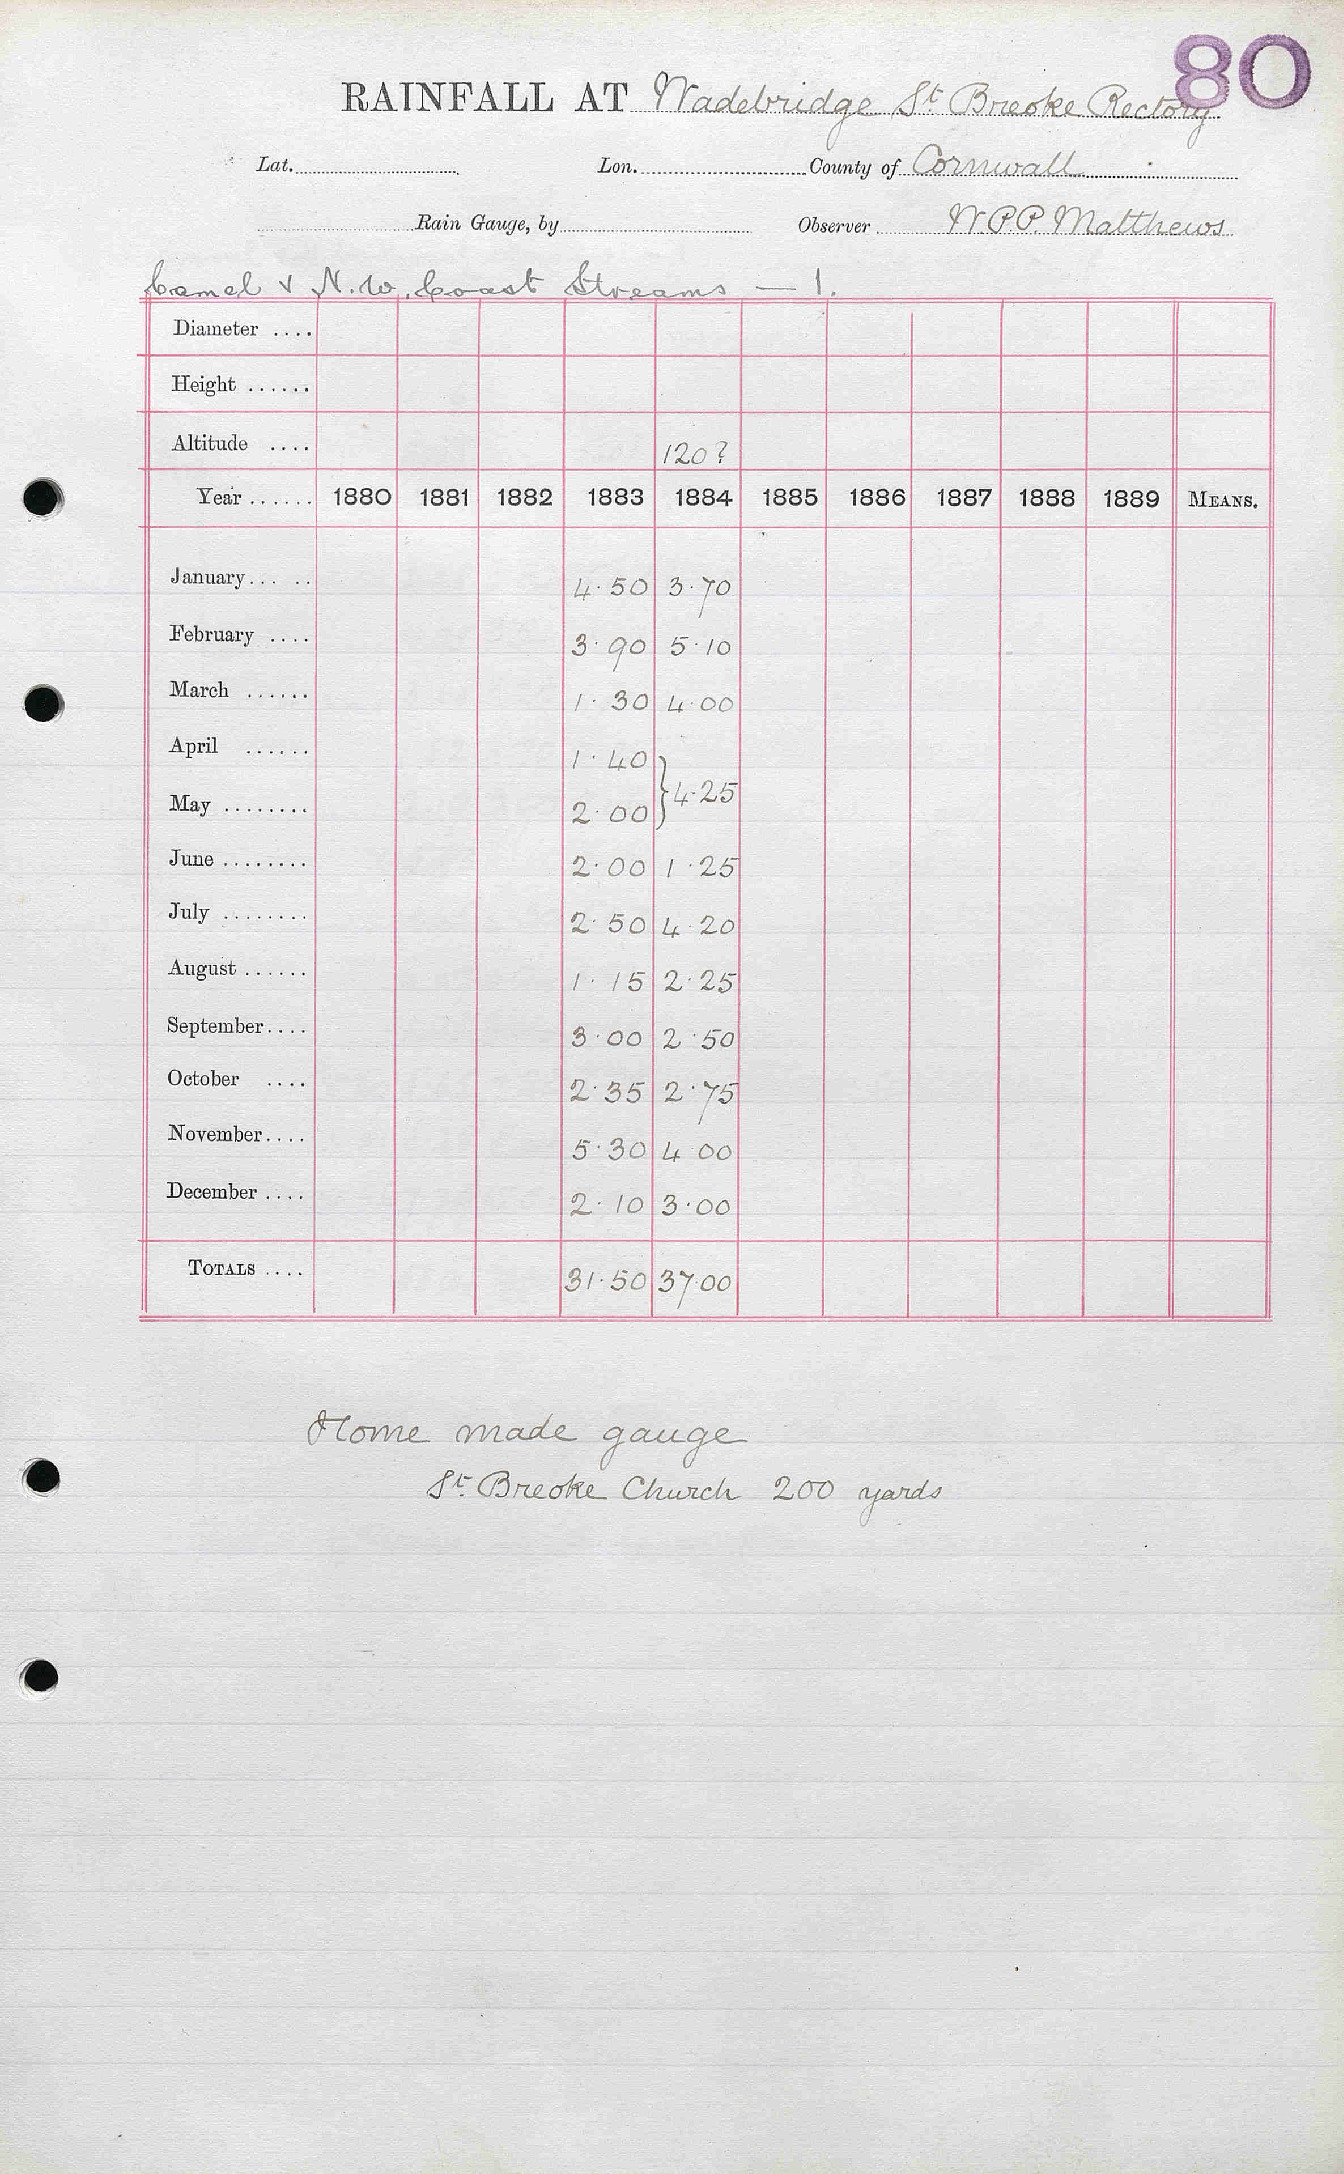 80
RAINFALL AT Wadebridge St Breoke Rectory
Lat. Lon. County of Cornwall
Rain Gauge, by Observer W P P. Matthews
Camel & N.W. Coast Streams — 1.
Diameter ....
Height ......
Altitude .... 120?
Year ...... 1880 1881 1882 1883 1884 1885 1886 1887 1888 1889 MEANS.
January... .. 4.50 3.70
February .... 3.90 5.10
March ...... 1.30 4.00
April ...... 1.40
} 4.25
May ........ 2.00
June ........ 2.00 1.25
July ........ 2.50 4.20
August ...... 1.15 2.25
September.... 3.00 2.50
October .... 2.35 2.75
November.... 5.30 4.00
December .... 2.10 3.00
TOTALS .... 31.50 37.00
Home made gauge
St. Breoke Church 200 yards